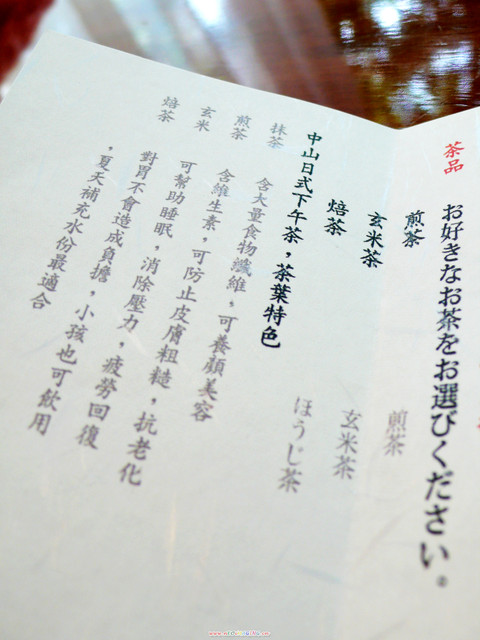 茶品
お好きなお茶をお選びください。
煎茶 煎茶
玄米茶 玄米茶
焙茶 ほうじ茶
中山日式下午茶，茶葉特色
抹茶 含大量食物纖維，可養顏美容
煎茶 含維生素，可防止皮膚粗糙，抗老化
玄米 可幫助睡眠，消除壓力，疲勞回復
焙茶 對胃不會造成負擔，小孩也可飲用
，夏天補充水份最適合